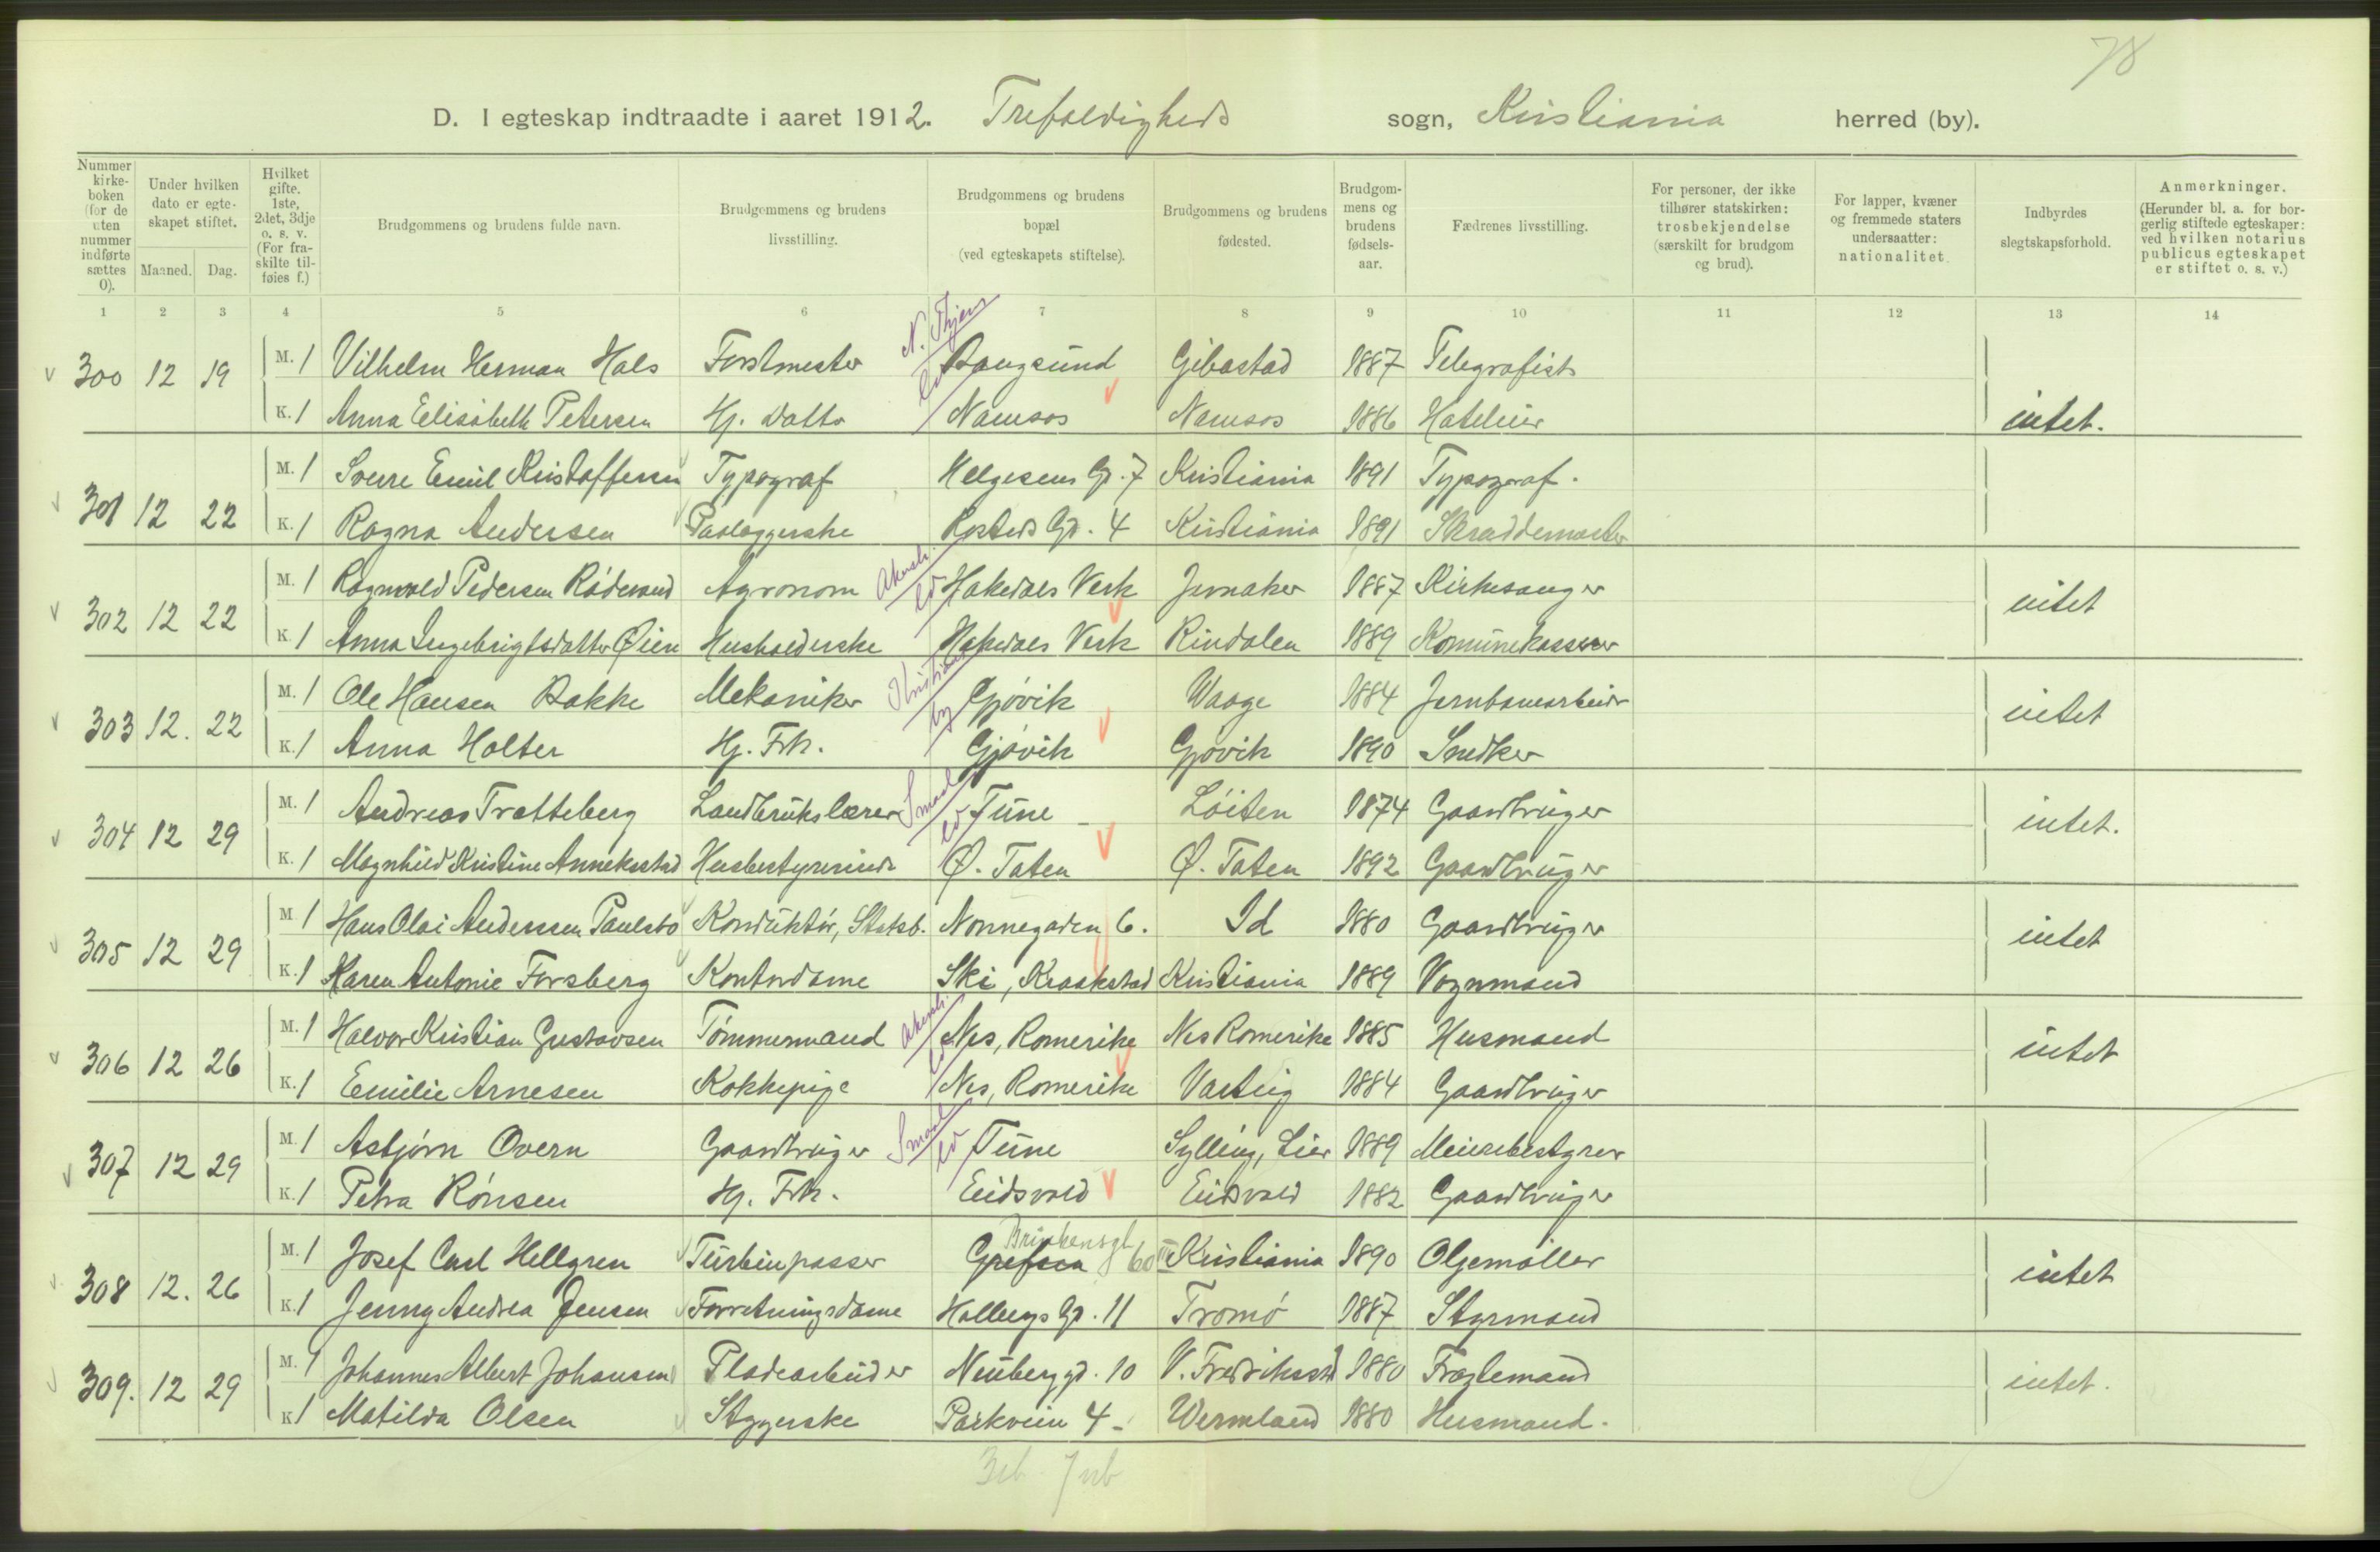 78
D. I egteskap indtraadte i aaret 1912. Trefoldigheds sogn, Kristiania herred (by).
Nummer kirke-boken (for de uten nummer indførte sættes 0).
Under hvilken dato er egte-skapet stiftet.
Maaned. Dag.
Hvilket gifte. 1ste, 2det, 3dje o. s. v. (For fra-skilte til-føies f.)
Brudgommens og brudens fulde navn.
Brudgommens og brudens livsstilling.
Brudgommens og brudens bopæl (ved egteskapets stiftelse).
Brudgommens og brudens fødested.
Brudgom-mens og brudens fødsels-aar.
Fædrenes livsstilling.
For personer, der ikke tilhører statskirken: trosbekjendelse (særskilt for brudgom og brud).
For lapper, kvæner og fremmede staters undersaatter: nationalitet.
Indbyrdes slegtskapsforhold.
Anmerkninger. (Herunder bl. a. for bor-gerlig stiftede egteskaper: ved hvilken notarius publicus egteskapet er stiftet o. s. v.)
1 2 3 4 5 6 7 8 9 10 11 12 13 14
300 12 19 M. 1 Vilhelm Herman Hals Forstmester Bangsund Gibostad 1887 Telegrafist
K. 1 Anna Elisabeth Petersen Hj. datter Namsos Namsos 1886 Hoteleier intet.
301 12 22 M. 1 Sverre Emil Kristoffersen Typograf Helgesens Gd. 7 Kristiania 1891 Typograf.
K. 1 Ragna Andersen Paalæggerske Rosteds Gd. 4 Kristiania 1891 Skræddermester
302 12 22 M. 1 Ragnvald Pedersen Rådesand Agronom Akersh. Hakedals Verk Jevnaker 1887 Kirkesanger intet
K. 1 Anna Ingebrigtsdatter Øien Husholderske Hakedals Verk Rindalen 1889 Komunekasserer
303 12. 22 M. 1 Ole Hansen Bakke Mekaniker Kristians by Gjøvik Vaage 1884 Jernbanearbeider intet
K. 1 Anna Holter Hj. Frk. Gjøvik Gjøvik 1890 Snedker
304 12 29 M. 1 Andreas Tratteberg Landbrukslærer Smaal Tune Løiten 1874 Gaardbruger intet.
K. 1 Magnhild Kristine Annekstad Husbestyrerinde Ø. Toten Ø. Toten 1892 Gaardbruger
305 12 29 M. 1 Hans Olai Anderssen Paulsbo Konduktør, Statsb. Nonnegaden 6. Id 1880 Gaardbruger intet
K. 1 Karen Antonie Forsberg Kontordame Ski, Kraakstad Kristiania 1889 Vognmand
306 12 26 M. 1 Halvor Kristian Gustavsen Tømmermand Akersh. Nes, Romerike Nes Romerike 1885 Husmand intet
K. 1 Emilie Arnesen Kokkepige Nes, Romerike Varteig 1884 Gaardbruger
307 12 29 M. 1 Asbjørn Overn Gaardbruger Smaal Tune Sylling, Lier 1889 Meieribestyrer
K. 1 Petra Rønsen Hj. Frk. Eidsvold Eidsvold 1882 Gaardbruger
308 12. 26 M. 1 Josef Carl Hellgren Turbinpasser Grefsen Brinkensgt 60 III Kristiania 1890 Oljemøller intet
K. 1 Jenny Andrea Jensen Forretningsdame Holbergs Gd. 11 Tromø 1887 Styrmand
309. 12 29 M. 1 Johannes Albert Johansen Pladearbeider Neuberggd. 10 V. Fredriksstd 1880 Fragtemand intet.
K. 1 Matilda Olsen Strygerske Parkveien 4 Wermland 1880 Husmand.